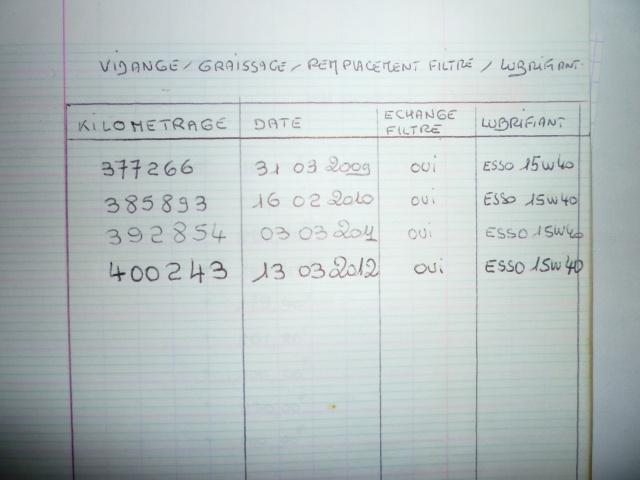 VIDANGE / GRAISSAGE / REMPLACEMENT FILTRE / LUBRIFIANT
KILOMETRAGE DATE ECHANGE FILTRE LUBRIFIANT
377266 31 03 2009 OUI ESSO 15W40
385893 16 02 2010 OUI ESSO 15W40
392854 03 03 2011 OUI ESSO 15W40
400243 13 03 2012 OUI ESSO 15W40